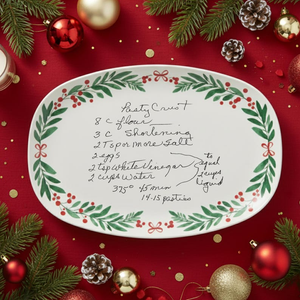 Pasty Crust
8 C flour
3 C Shortening
2 T or more Salt
2 eggs
2 tsp White Vinegar
2 cups Water
to equal
cups
liquid
375° 45 min
14-15 pasties